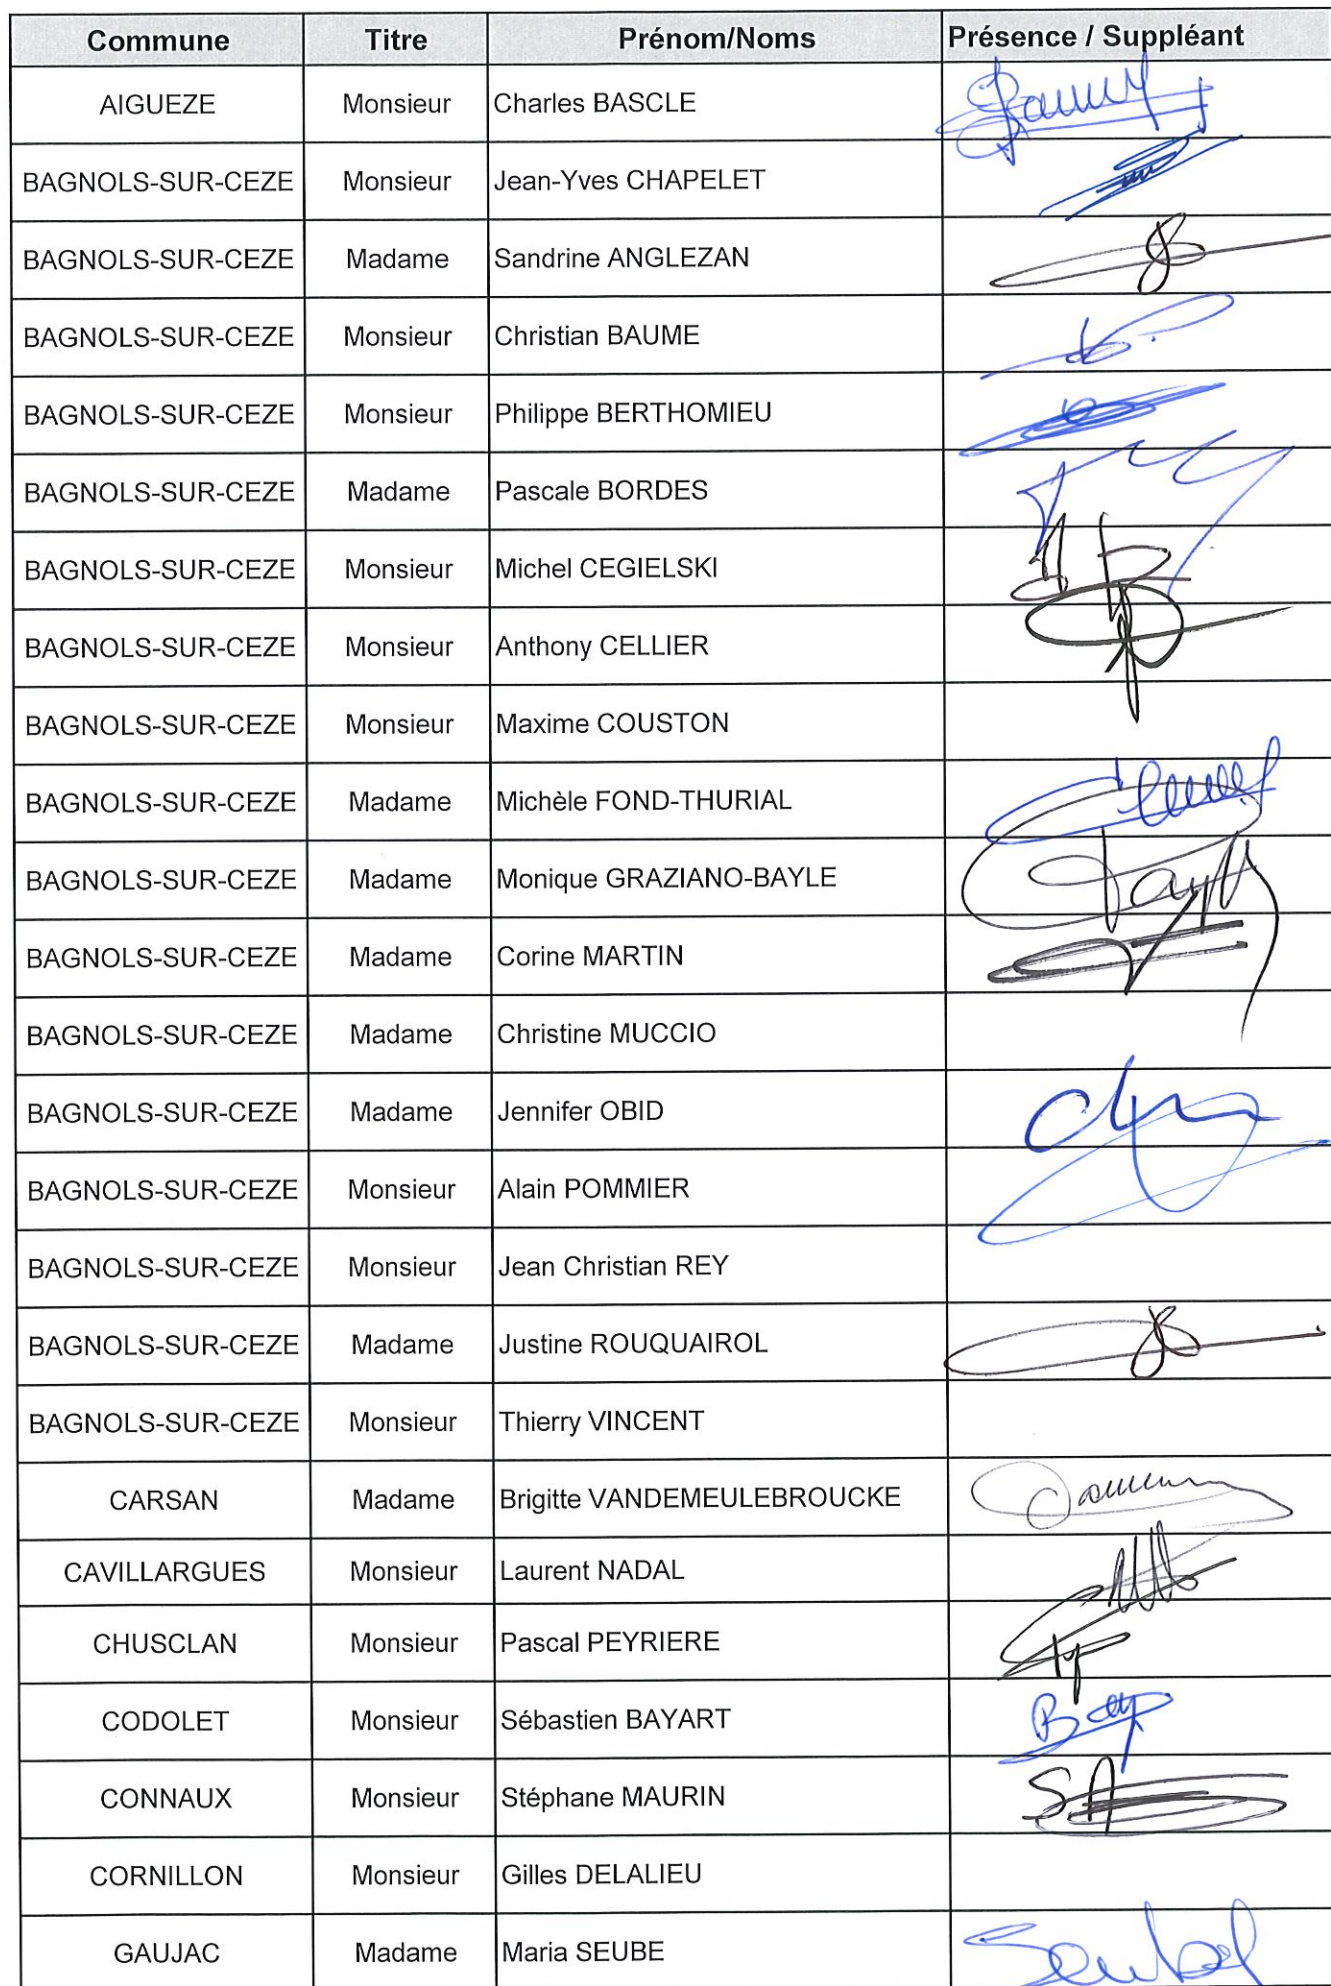 Commune Titre Prénom/Noms Présence / Suppléant
AIGUEZE Monsieur Charles BASCLE
BAGNOLS-SUR-CEZE Monsieur Jean-Yves CHAPELET
BAGNOLS-SUR-CEZE Madame Sandrine ANGLEZAN
BAGNOLS-SUR-CEZE Monsieur Christian BAUME
BAGNOLS-SUR-CEZE Monsieur Philippe BERTHOMIEU
BAGNOLS-SUR-CEZE Madame Pascale BORDES
BAGNOLS-SUR-CEZE Monsieur Michel CEGIELSKI
BAGNOLS-SUR-CEZE Monsieur Anthony CELLIER
BAGNOLS-SUR-CEZE Monsieur Maxime COUSTON
BAGNOLS-SUR-CEZE Madame Michèle FOND-THURIAL
BAGNOLS-SUR-CEZE Madame Monique GRAZIANO-BAYLE
BAGNOLS-SUR-CEZE Madame Corine MARTIN
BAGNOLS-SUR-CEZE Madame Christine MUCCIO
BAGNOLS-SUR-CEZE Madame Jennifer OBID
BAGNOLS-SUR-CEZE Monsieur Alain POMMIER
BAGNOLS-SUR-CEZE Monsieur Jean Christian REY
BAGNOLS-SUR-CEZE Madame Justine ROUQUAIROL
BAGNOLS-SUR-CEZE Monsieur Thierry VINCENT
CARSAN Madame Brigitte VANDEMEULEBROUCKE
CAVILLARGUES Monsieur Laurent NADAL
CHUSCLAN Monsieur Pascal PEYRIERE
CODOLET Monsieur Sébastien BAYART
CONNAUX Monsieur Stéphane MAURIN
CORNILLON Monsieur Gilles DELALIEU
GAUJAC Madame Maria SEUBE